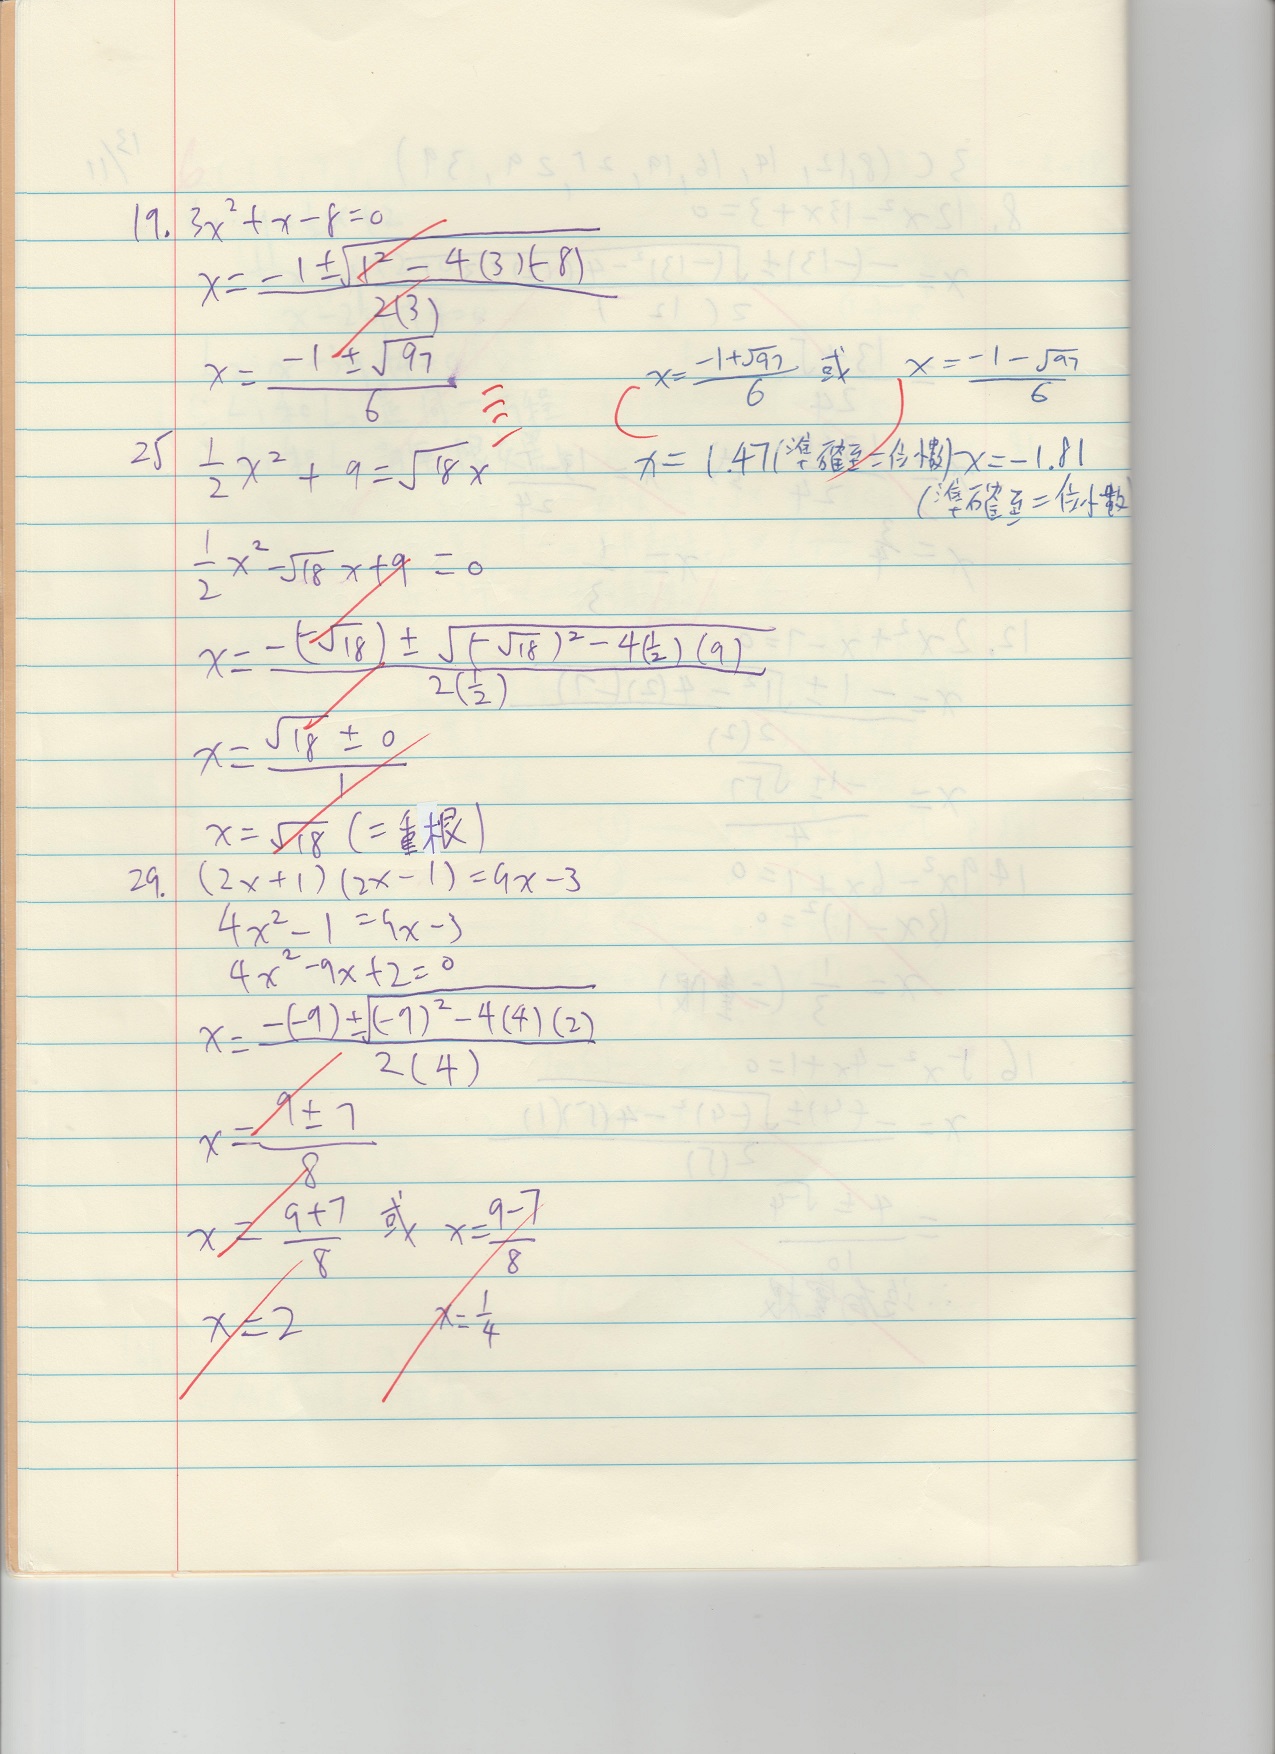 19. 3x²+x-8=0
x = (-1±√(1²-4(3)(-8)))/(2(3))
x = (-1±√97)/6
x = (-1+√97)/6 或 x = (-1-√97)/6
x = 1.47(準確至二位小數) x=-1.81
(準確至二位小數
25 1/2 x² + 9 = √18 x
1/2 x² - √18 x + 9 = 0
x = (-(-√18) ± √((-√18)² - 4(1/2)(9)))/(2(1/2))
x = (√18 ± 0)/1
x = √18 (二重根)
29. (2x+1)(2x-1)=9x-3
4x²-1=9x-3
4x²-9x+2=0
x = (-(-9)±√((-9)²-4(4)(2)))/(2(4))
x = (9±7)/8
x = (9+7)/8 或 x = (9-7)/8
x = 2 x = 1/4